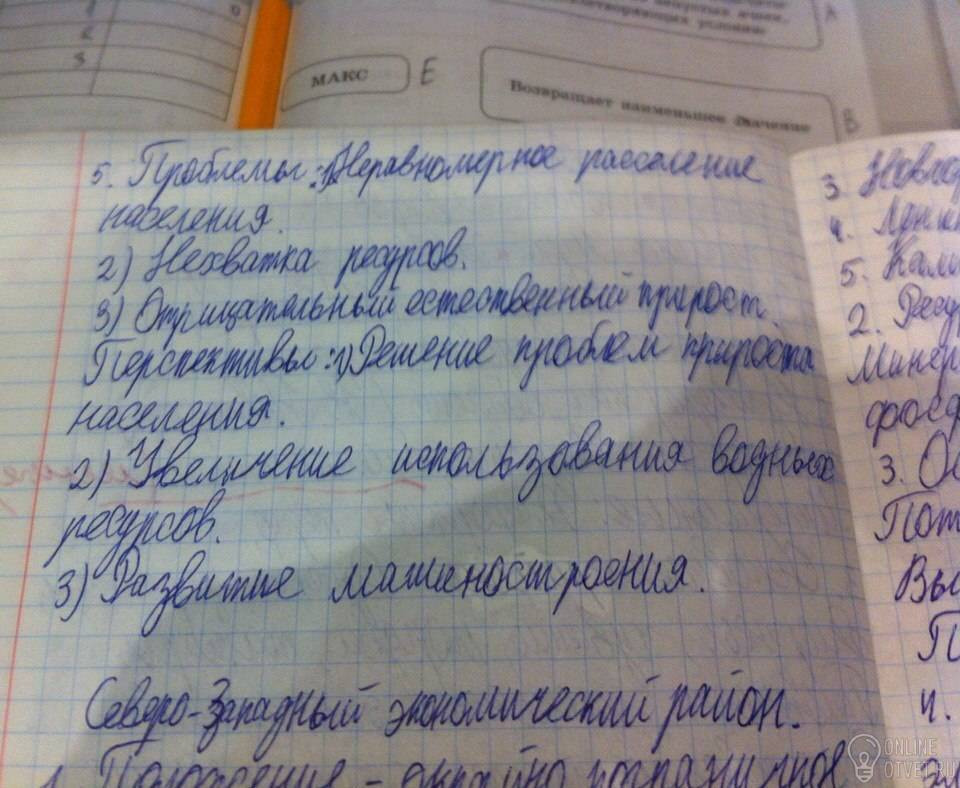 МАКС
Е
Возвращает наименьшее значение
В
5. Проблемы: 1) Неравномерное расселение
населения.
2) Нехватка ресурсов.
3) Отрицательный естественный прирост.
Перспективы: 1) Решение проблем прироста
населения.
2) Увеличение использования водных
ресурсов.
3) Развитие машиностроения.
Северо-Западный экономический район.
1. Положение - окраинно пограничное
3.
4.
5.
2. Ресур
Минер
фосф
3. Ос
Пот
Вы
П
4.
ONLINE
OTVET.RU